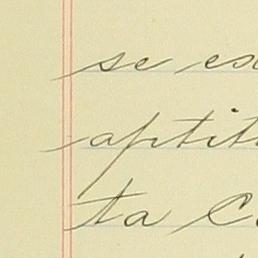 se es
aptit
ta C